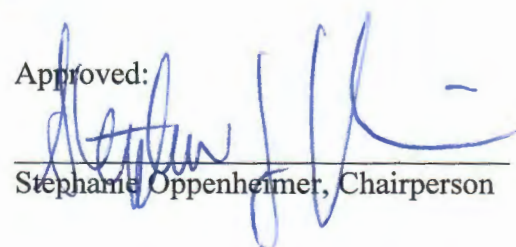 Approved:
Stephanie Oppenheimer, Chairperson